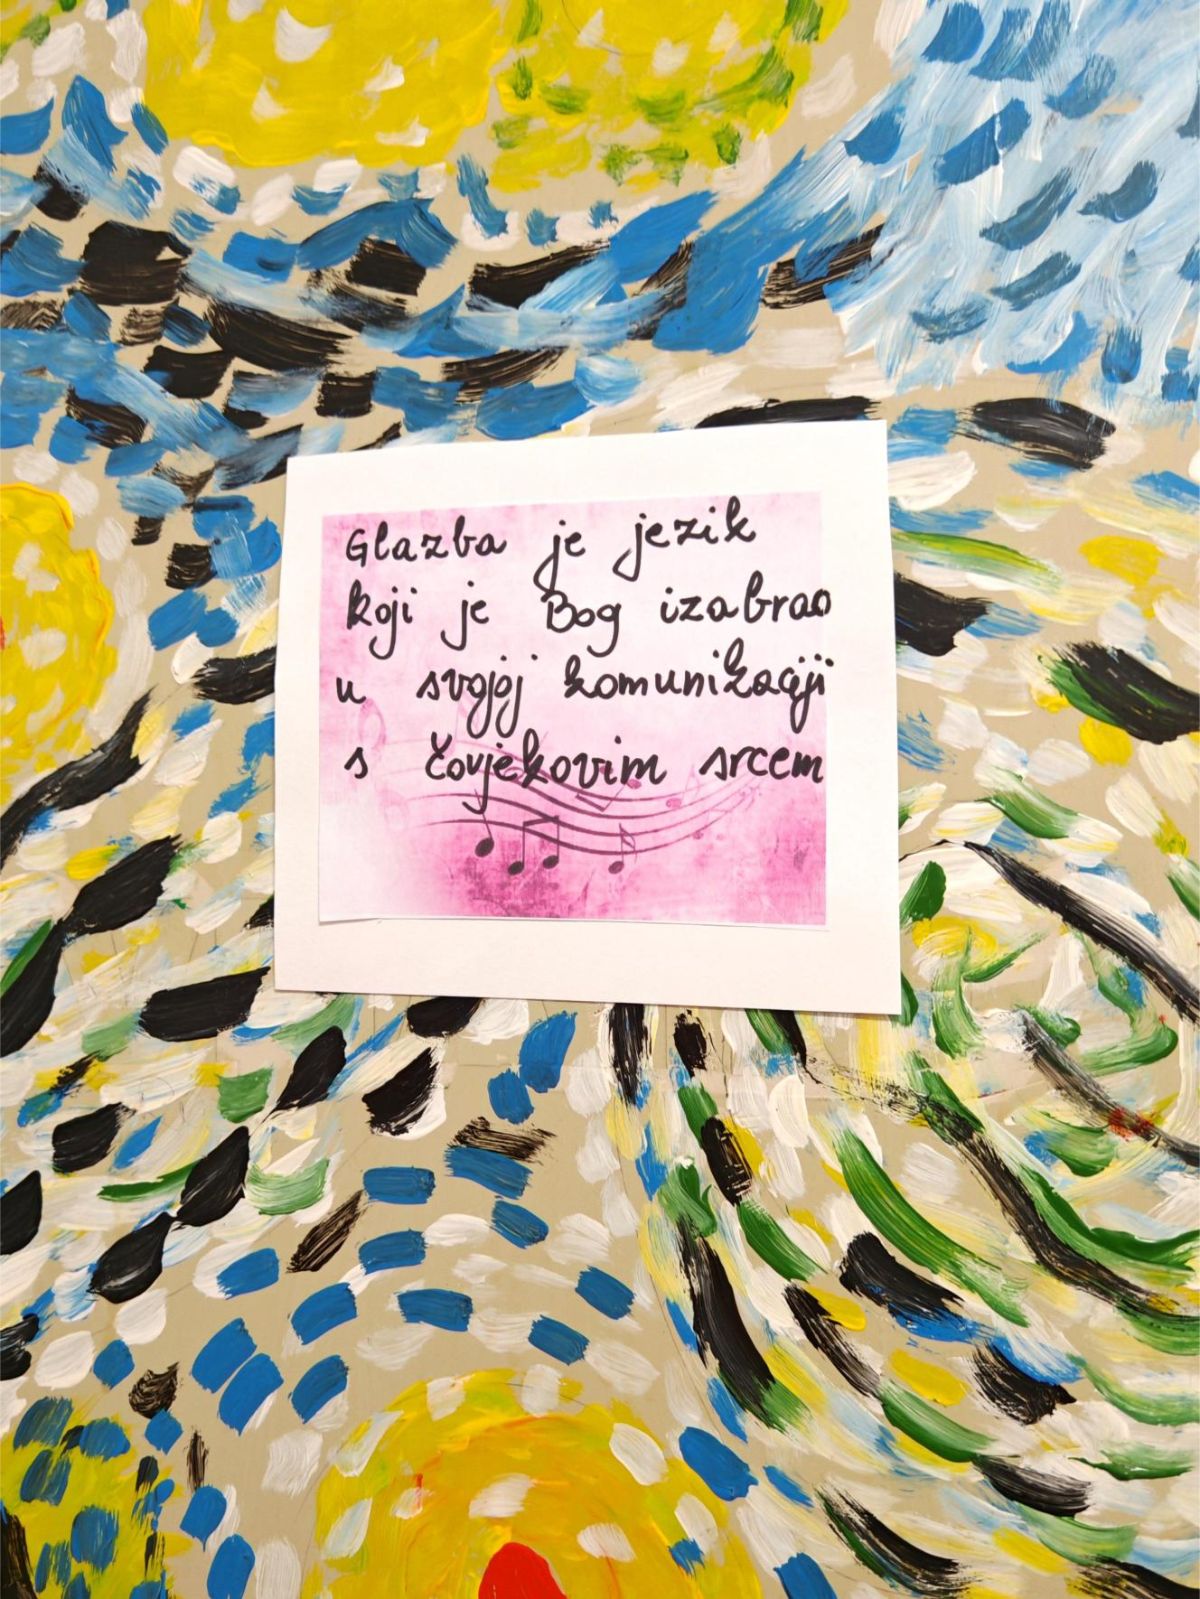 Glazba je jezik
koji je Bog izabrao
u svojoj komunikaciji
s čovjekovim srcem